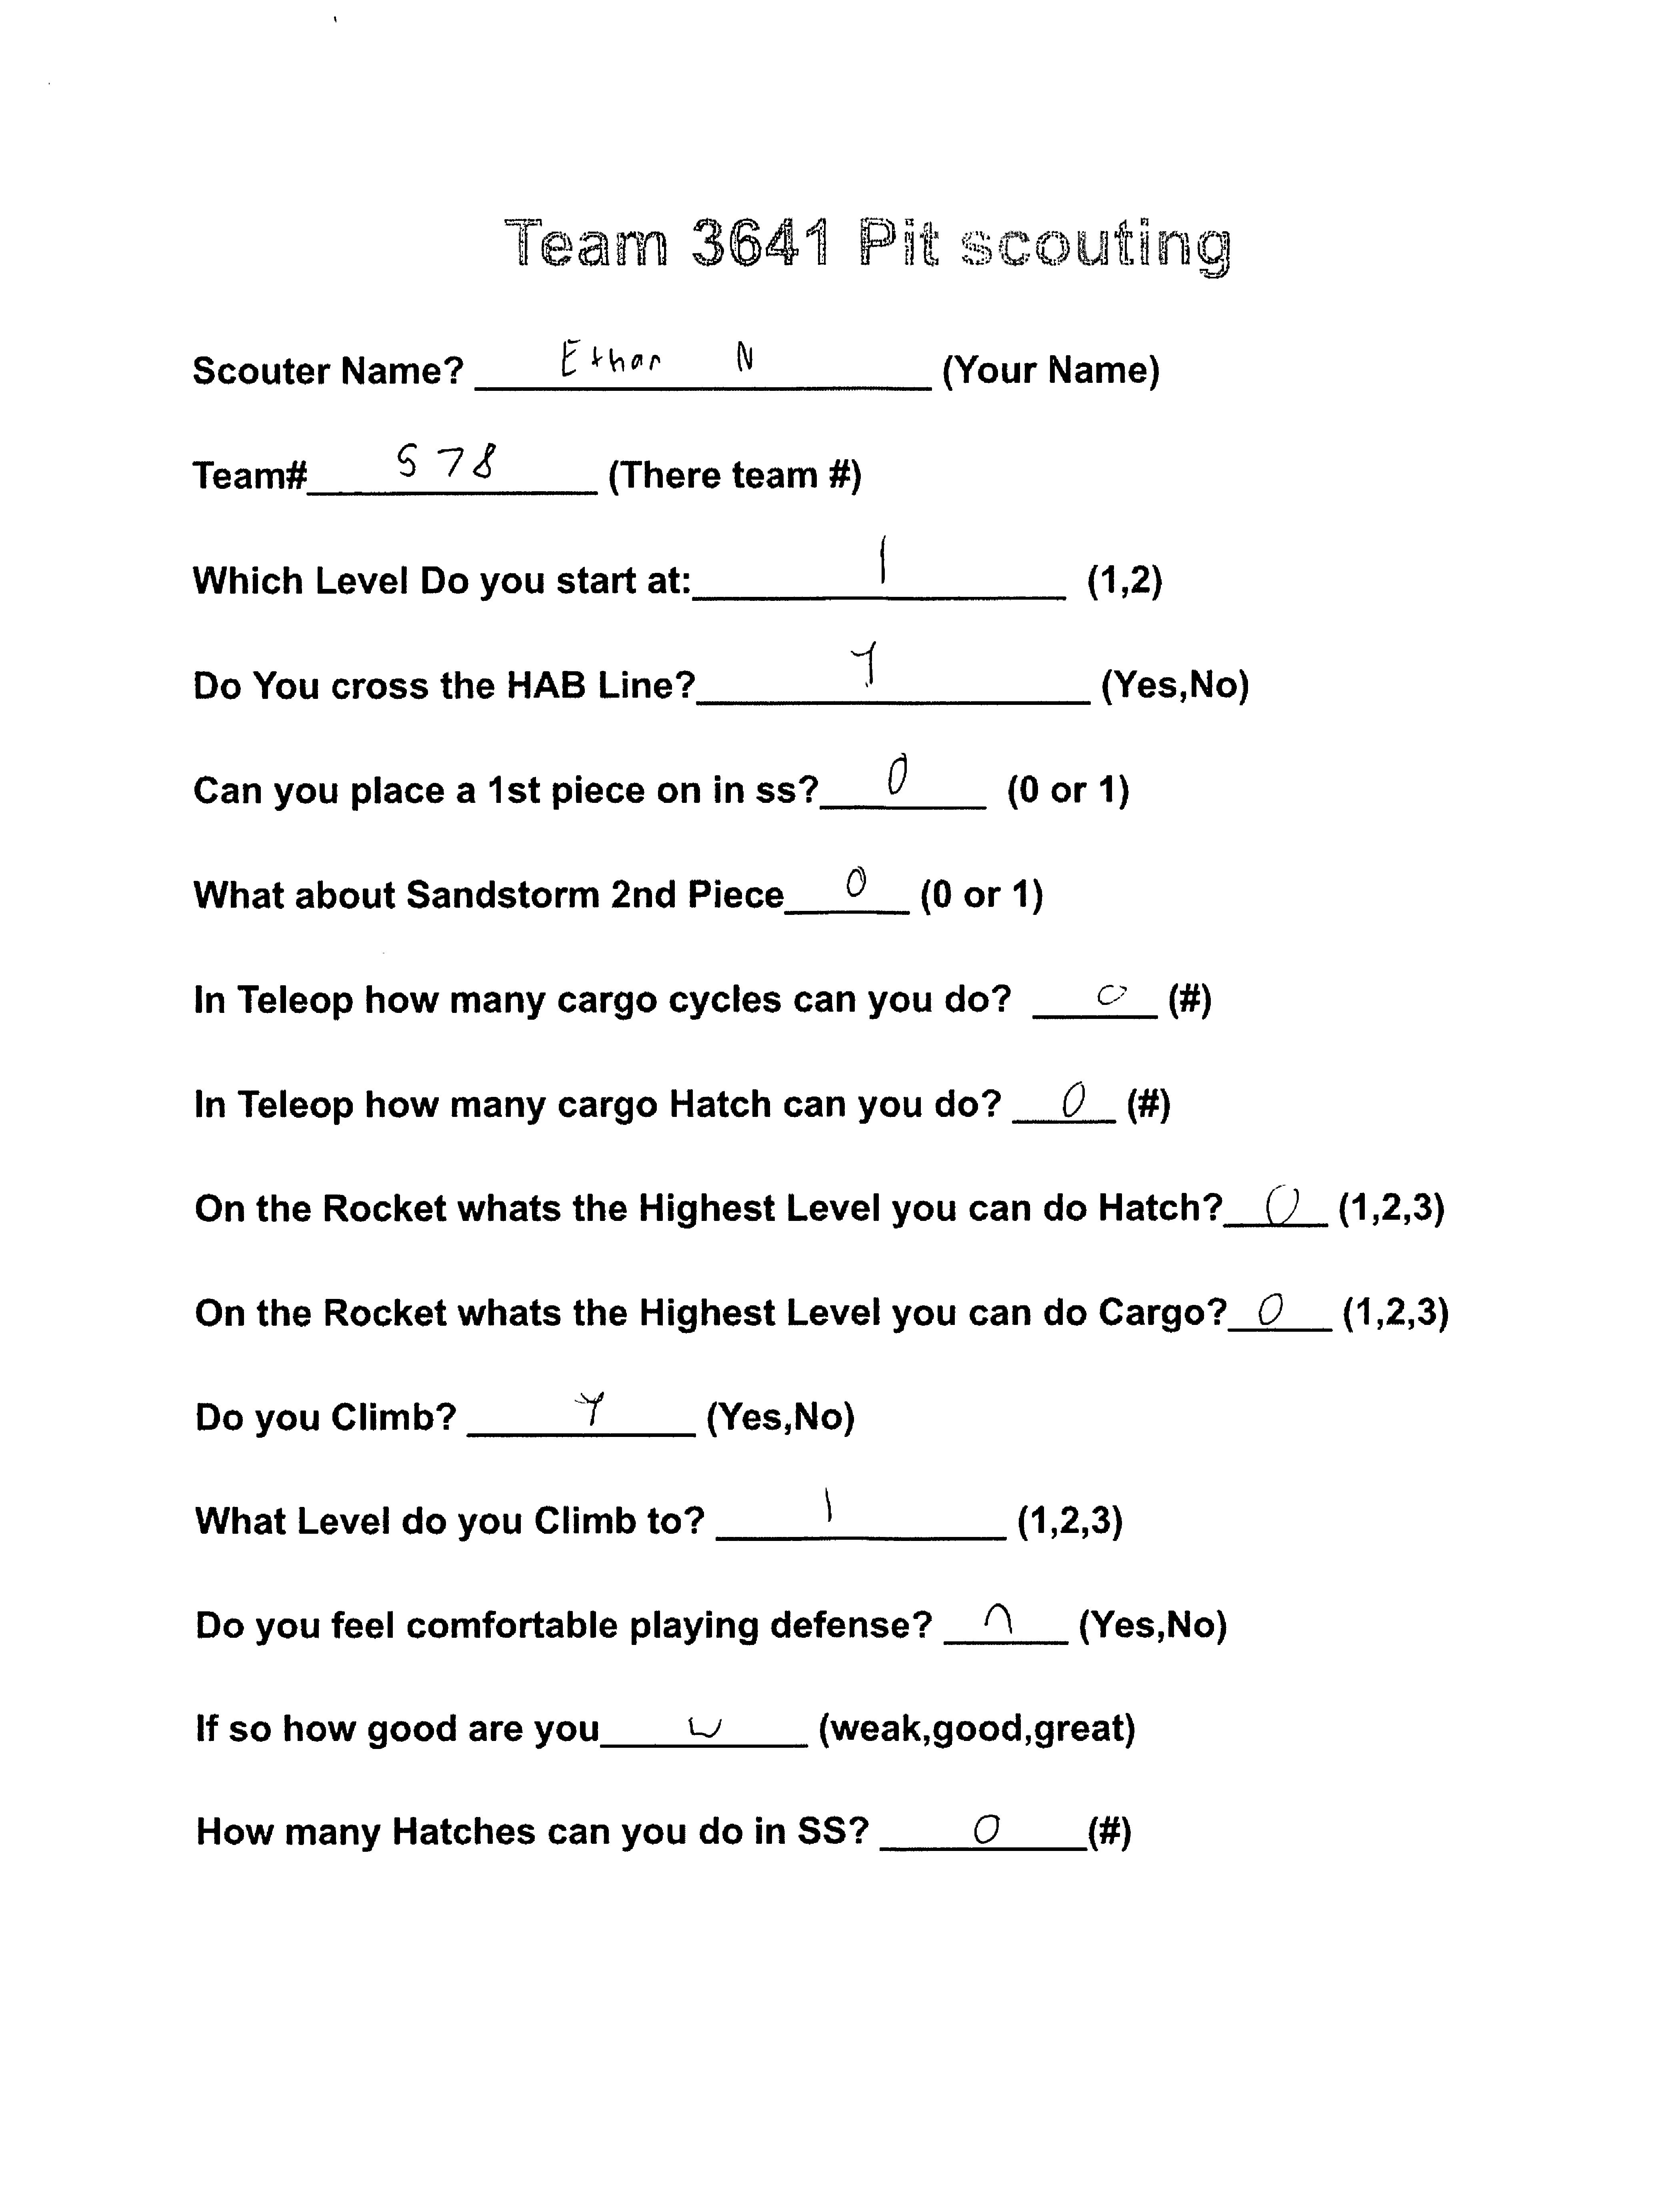 Team 3641 Pit scouting
Scouter Name? Ethan N (Your Name)
Team# 578 (There team #)
Which Level Do you start at: 1 (1,2)
Do You cross the HAB Line? Y (Yes,No)
Can you place a 1st piece on in ss? 0 (0 or 1)
What about Sandstorm 2nd Piece 0 (0 or 1)
In Teleop how many cargo cycles can you do? 0 (#)
In Teleop how many cargo Hatch can you do? 0 (#)
On the Rocket whats the Highest Level you can do Hatch? 0 (1,2,3)
On the Rocket whats the Highest Level you can do Cargo? 0 (1,2,3)
Do you Climb? Y (Yes,No)
What Level do you Climb to? 1 (1,2,3)
Do you feel comfortable playing defense? n (Yes,No)
If so how good are you w (weak,good,great)
How many Hatches can you do in SS? 0 (#)